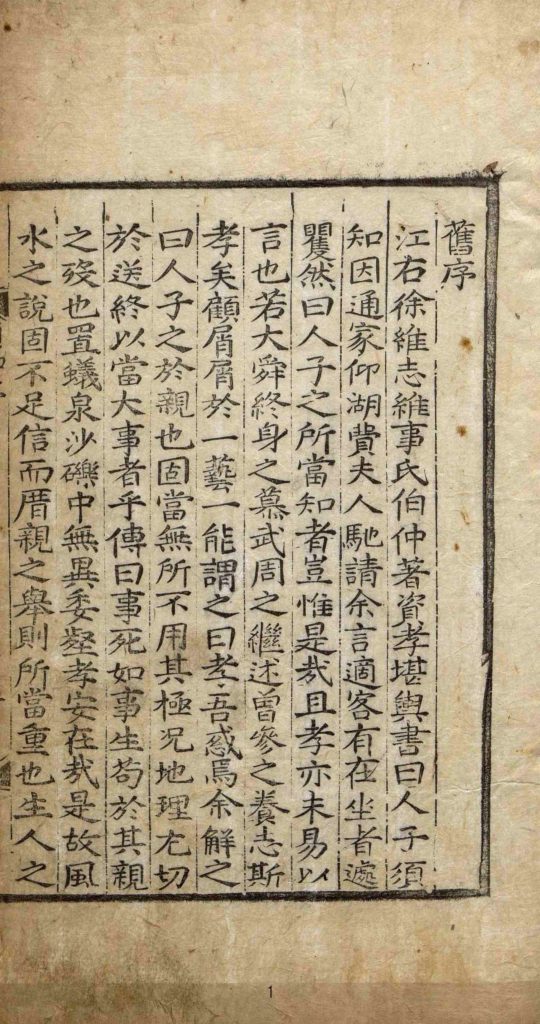 舊序
江右徐維志維事氏伯仲著資孝堪輿書曰人子須
知因通家仰湖費夫人馳請余言適客有在坐者遽
矍然曰人子之所當知者豈惟是哉且孝亦未易以
言也若大舜終身之慕武周之繼述曾參之養志斯
孝矣顧屑屑於一藝一能謂之曰孝吾惑焉余解之
曰人子之於親也固當無所不用其極况地理尤切
於送終以當大事者乎傳曰事死如事生苟於其親
之歿也置蟻泉沙礫中無異委壑孝安在哉是故風
水之說固不足信而厝親之舉則所當重也生人之
1